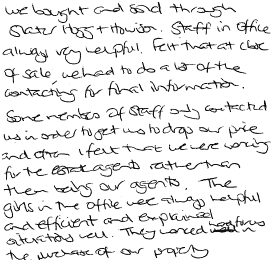 we bought and sold through
Slater Hogg + Howison. Staff in office
always very helpful. Felt that at close
of sale, we had to do a lot of the
contacting for final information.
Some members of staff only contacted
us in order to get us to drop our price
and often I felt that we were working
for the estate agents rather than
them being our agents. The
girls in the office were always helpful
and efficient and explained
situations well. They worked
the purchase of our property